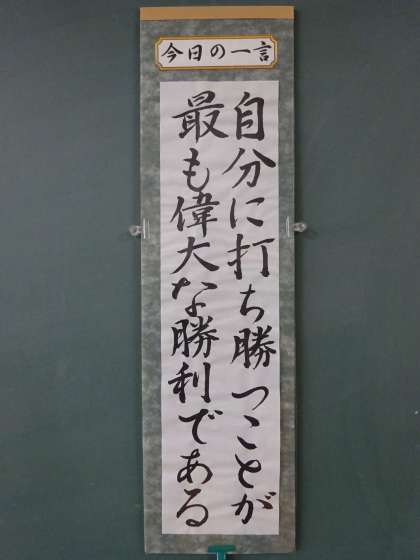 今日の一言
自分に打ち勝つことが
最も偉大な勝利である